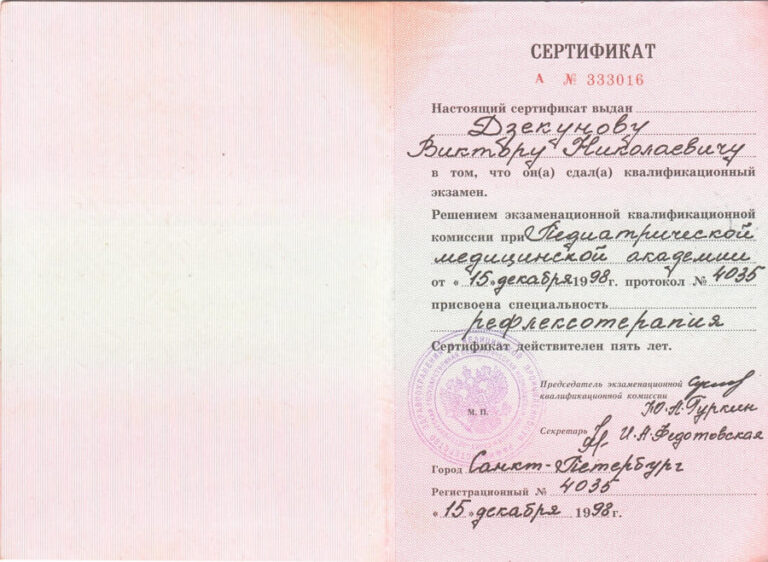 СЕРТИФИКАТ
А № 333016
Настоящий сертификат выдан
Дзекунову
Виктору Николаевичу
в том, что он(а) сдал(а) квалификационный
экзамен.
Решением экзаменационной квалификационной
комиссии при Педиатрической
медицинской академии
от « 15 » декабря 1998 г. протокол № 4035
присвоена специальность
рефлексотерапия
Сертификат действителен пять лет.
Председатель экзаменационной
квалификационной комиссии
Ю.А. Гуркин
М. П.
Секретарь И.А. Федотовская
Город Санкт-Петербург
Регистрационный № 4035
« 15 » декабря 1998 г.